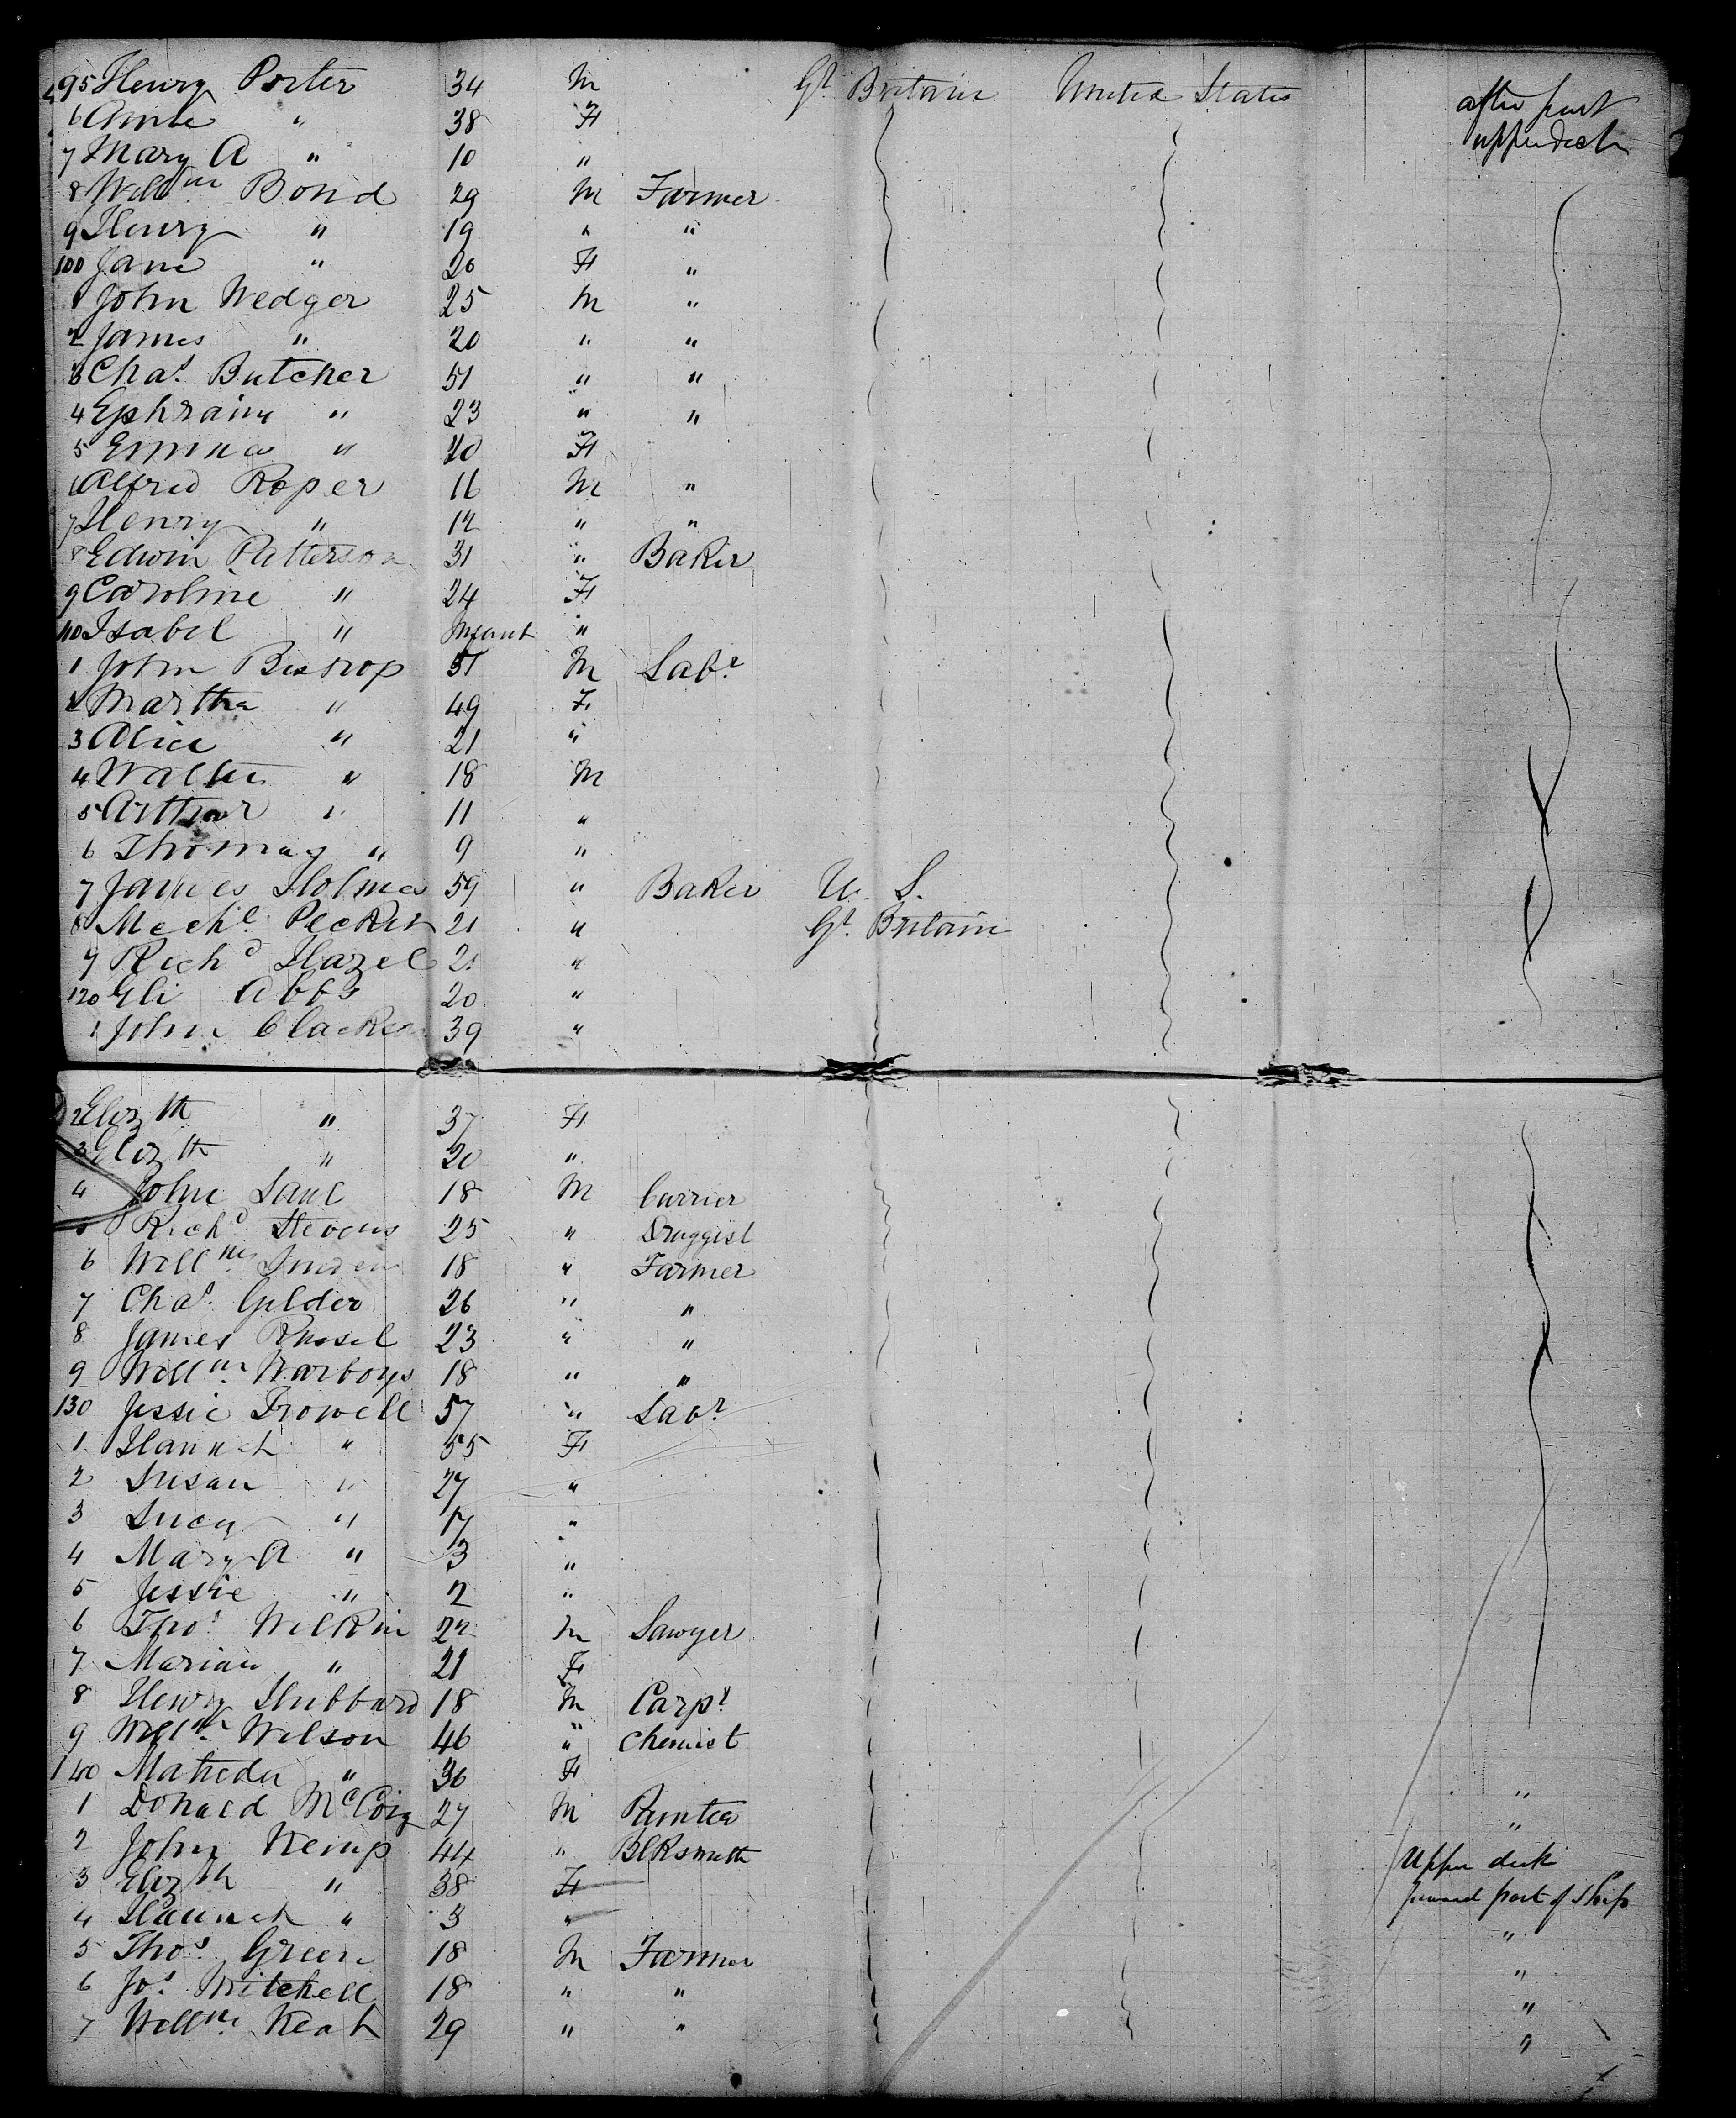 95 Henry Porter 34 M Gt Britain United States after part
6 Anne " 38 F upper deck
7 Mary A " 10 "
8 Willm Bond 29 M Farmer
9 Henry " 19 " "
100 Jane " 20 F "
1 John Wedger 25 M "
2 James " 20 " "
3 Chas. Butcher 51 " "
4 Ephraim " 23 " "
5 Emma " 20 F
6 Alfred Roper 16 M "
7 Henry " 12 " "
8 Edwin Patterson 31 " Baker
9 Caroline " 24 F
110 Isabel " Infant "
1 John Bishop 51 M Labr
2 Martha " 49 F
3 Alice " 21 "
4 Walter " 18 M
5 Arthur " 11 "
6 Thomas " 9 "
7 James Holmes 59 " Baker U. S.
8 Mechl. Pecker 21 " Gt. Britain
9 Richd Hazel 21 "
120 Eli Abbs 20 "
1 John Clacker 39 "
2 Elizth " 37 F
3 Elizth " 20 "
4 John Saul 18 M Carrier
5 Richd Stevens 25 " Druggist
6 Willm 18 " Farmer
7 Chas. Gilder 26 " "
8 James Russel 23 " "
9 Willm. Warboys 18 " "
130 Jessie Trowell 57 " Labr
1 Hannah " 55 F
2 Susan " 27 "
3 Lucy " 17 "
4 Mary A " 3 "
5 Jessie " 2 "
6 Thos. Wilkin 22 M Sawyer
7 Marian " 21 F
8 Henry Hubbard 18 M Carpr
9 Willm. Wilson 46 " Chemist
140 Matieda " 36 F "
1 Donald McCoig 27 M Painter "
2 John Kemp 44 " Blksmith Upper deck
3 Elizth " 38 F forward part of Ship
4 Hannah " 3 " "
5 Thos. Green 18 M Farmer "
6 Jos. Mitchell 18 " " "
7 Willm. Keat 29 " " "